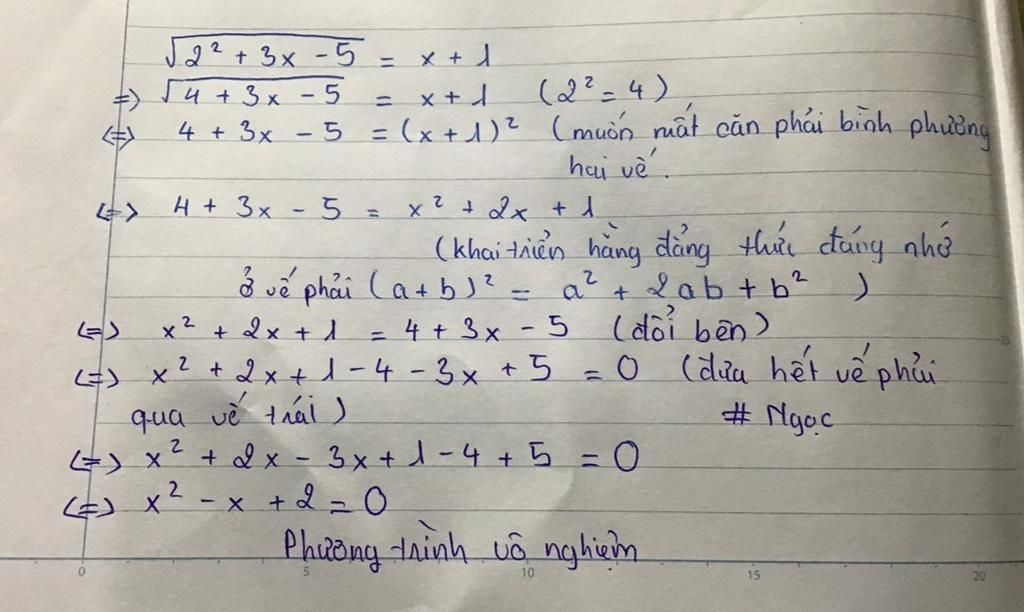 √2² + 3x - 5 = x + 1
=> √4 + 3x - 5 = x + 1 (2² = 4)
<=> 4 + 3x - 5 = (x + 1)² (muốn mất căn phải bình phương
hai vế.
<=> 4 + 3x - 5 = x² + 2x + 1
(khai triển hằng đẳng thức đáng nhớ
ở vế phải (a + b)² = a² + 2ab + b² )
<=> x² + 2x + 1 = 4 + 3x - 5 (đổi bên)
<=> x² + 2x + 1 - 4 - 3x + 5 = 0 (đưa hết vế phải
qua vế trái) # Ngọc
<=> x² + 2x - 3x + 1 - 4 + 5 = 0
<=> x² - x + 2 = 0
Phương trình vô nghiệm
0 5 10 15 20